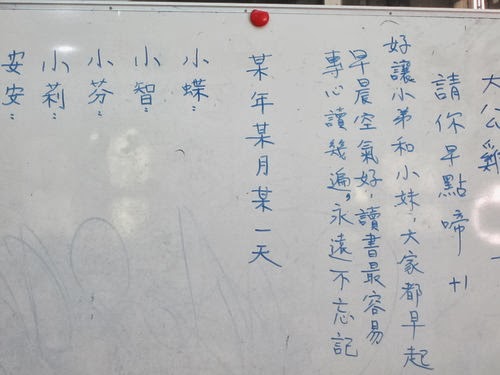 大公雞
請你早點啼 +1
好讓小弟和小妹，大家都早起
早晨空氣好，讀書最容易
專心讀幾遍，永遠不忘記
某年某月某一天
小蝶：
小智：
小芬：
小莉：
安安：